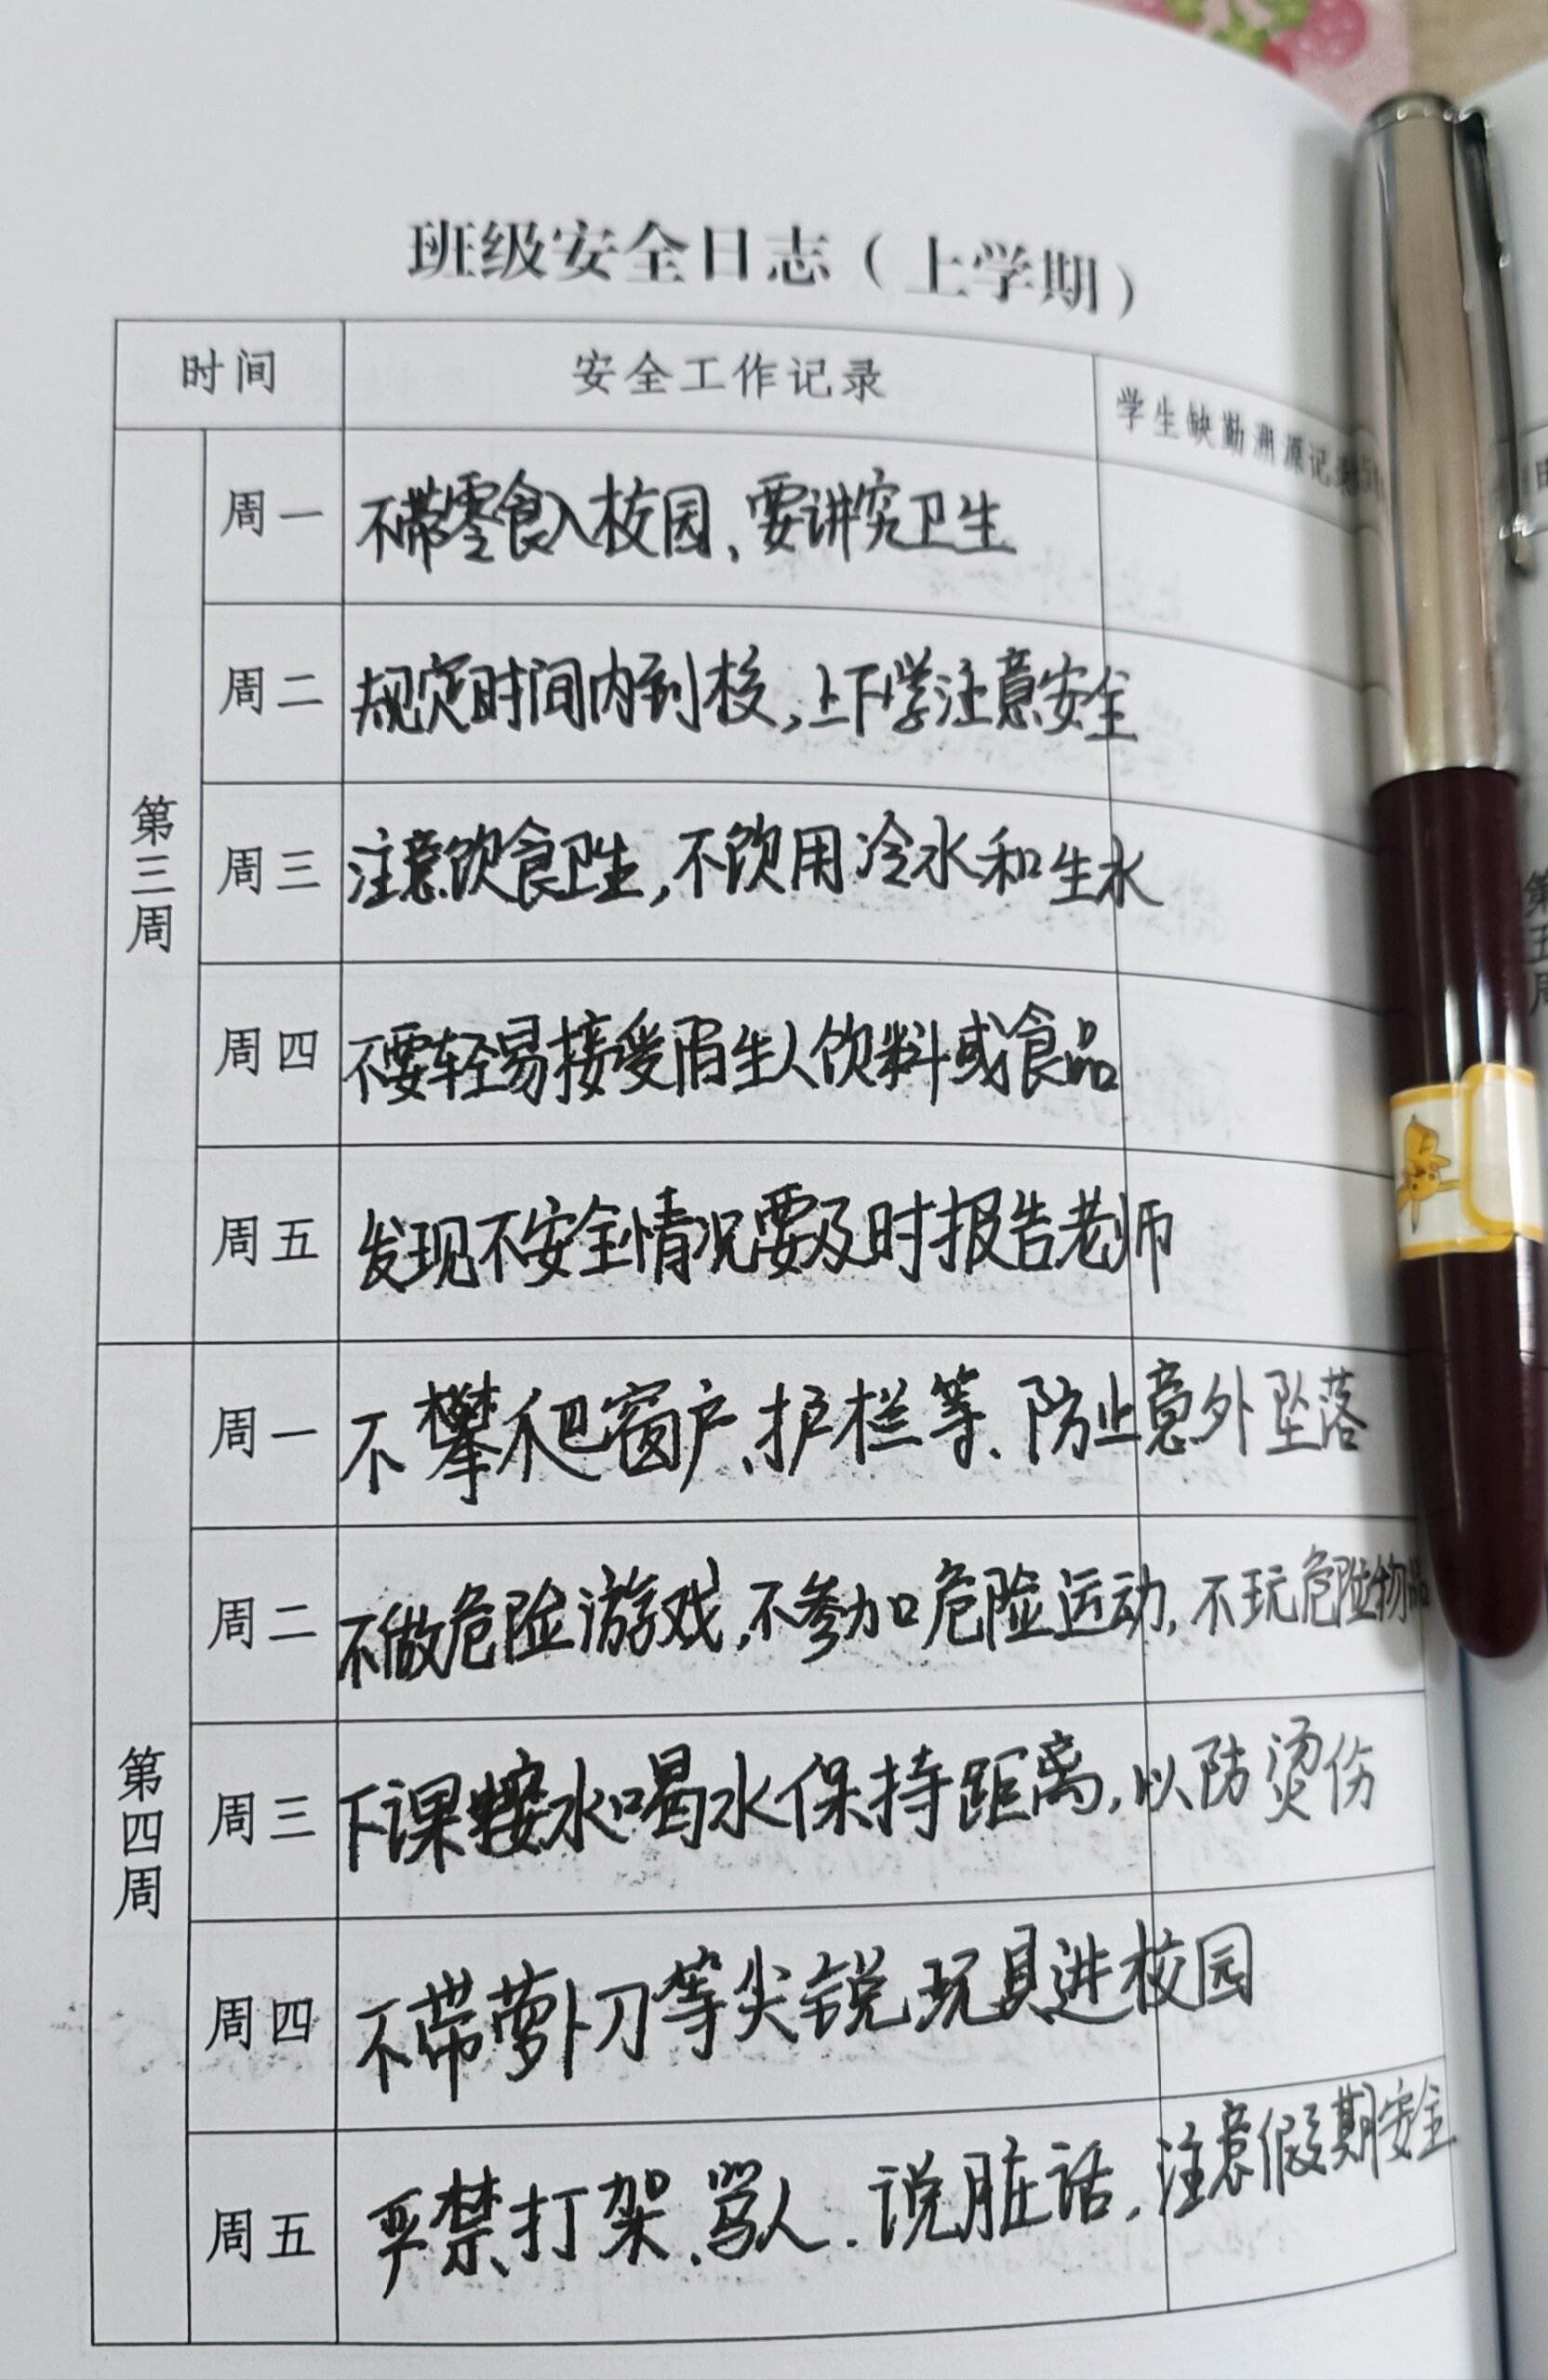 班级安全日志（上学期）
时间 安全工作记录 学生缺勤溯源记录
第三周
周一 不带零食入校园、要讲究卫生
周二 规定时间内到校，上下学注意安全
周三 注意饮食卫生，不饮用冷水和生水
周四 不要轻易接受陌生人饮料或食品
周五 发现不安全情况要及时报告老师
第四周
周一 不攀爬窗户、护栏等、防止意外坠落
周二 不做危险游戏，不参加危险运动，不玩危险物品
周三 下课接水喝水保持距离，以防烫伤
周四 不带萝卜刀等尖锐玩具进校园
周五 严禁打架、骂人、说脏话，注意假期安全
第五周